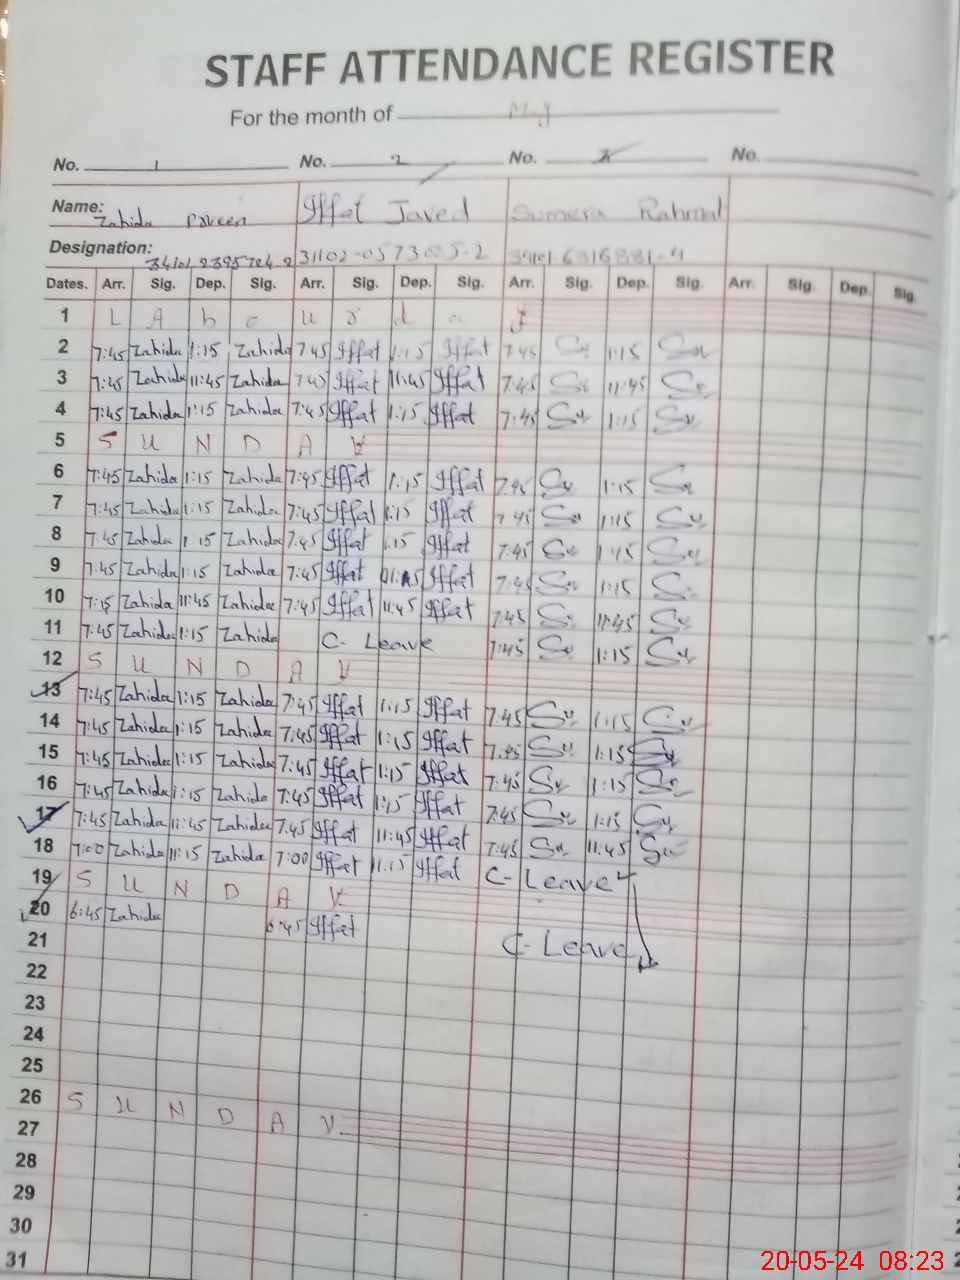 STAFF ATTENDANCE REGISTER
For the month of May
No. 1 No. 2 No. No.
Name: Zahida Iffat Javed Sumera
Designation:
Dates. Arr. Sig. Dep. Sig. Arr. Sig. Dep. Sig. Arr. Sig. Dep. Sig. Arr. Sig. Dep. Sig.
1 L A b o u r d a y
2 7:45 Zahida 1:15 Zahida 7:45 Iffat 1:15 Iffat 7:45 Su 1:15 Su
3 7:45 Zahida 11:45 Zahida 7:45 Iffat 11:45 Iffat 7:45 Su 11:45 Su
4 7:45 Zahida 1:15 Zahida 7:45 Iffat 1:15 Iffat 7:45 Su 1:15 Su
5 S U N D A Y
6 7:45 Zahida 1:15 Zahida 7:45 Iffat 1:15 Iffat 7:45 Su 1:15 Su
7 7:45 Zahida 1:15 Zahida 7:45 Iffat 1:15 Iffat 7:45 Su 1:15 Su
8 7:45 Zahida 1:15 Zahida 7:45 Iffat 1:15 Iffat 7:45 Su Su
9 7:45 Zahida 1:15 Zahida 7:45 Iffat Iffat 7:45 Su 1:15 Su
10 7:15 Zahida 11:45 Zahida 7:45 Iffat 11:45 Iffat 7:45 Su 11:45 Su
11 7:45 Zahida 1:15 Zahida C- Leave 7:45 Su 1:15 Su
12 S U N D A Y
13 7:45 Zahida 1:15 Zahida 7:45 Iffat 1:15 Iffat 7:45 Su 1:15 Su
14 7:45 Zahida 1:15 Zahida 7:45 Iffat 1:15 Iffat 7:45 Su 1:15 Su
15 7:45 Zahida 1:15 Zahida 7:45 Iffat 1:15 Iffat 7:45 Su 1:15 Su
16 7:45 Zahida 1:15 Zahida 7:45 Iffat 1:15 Iffat 7:45 Su 1:15 Su
17 7:45 Zahida 11:45 Zahida 7:45 Iffat 11:45 Iffat 7:45 Su 11:45 Su
18 7:00 Zahida 11:15 Zahida 7:00 Iffat 11:15 Iffat C- Leave
19 S U N D A Y
20 6:45 Zahida 6:45 Iffat C- Leave
21
22
23
24
25
26 S U N D A Y
27
28
29
30
31
20-05-24 08:23